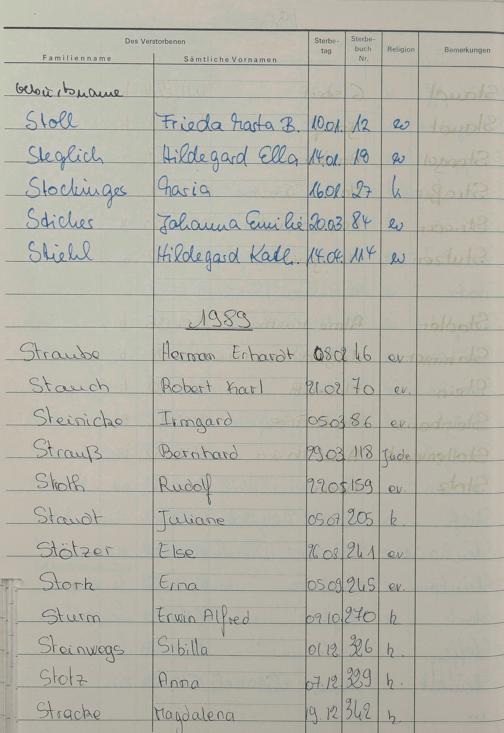 Des Verstorbenen
Familienname Sämtliche Vornamen Sterbe-tag Sterbe-buch Nr. Religion Bemerkungen
Geburtsname
Stoll Frieda Marta B. 10.01. 12 ev
Steglich Hildegard Ella 14.01. 18 ev
Stockinges Maria 16.01. 27 k
Stiches Johanna Emilie 20.03 84 ev
Stiehl Hildegard Kath. 14.04. 114 ev
1989
Straube Herman Erhardt 08.02 46 ev.
Stauch Robert Karl 21.02 70 ev.
Steinicke Irmgard 05.03 86 ev.
Strauß Bernhard 29.03 118 Jude
Stoth Rudolf 22.05 159 ev.
Staudt Juliane 05.07 205 k.
Stötzer Else 26.08 241 ev.
Stork Erna 05.09 245 ev.
Sturm Erwin Alfred 09.10. 270 k
Steinwegs Sibilla 01.12 326 k.
Stotz Anna 07.12 329 k.
Stracke Magdalena 19.12 342 k.